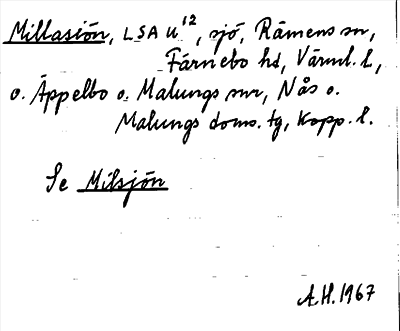 Millasjön, LSA U¹², sjö, Rämens sn,
Färnebo hd, Värml. l.,
o. Äppelbo o. Malungs snr, Nås o.
Malungs doms. tg, Kopp. l.
Se Milsjön
A.H. 1967